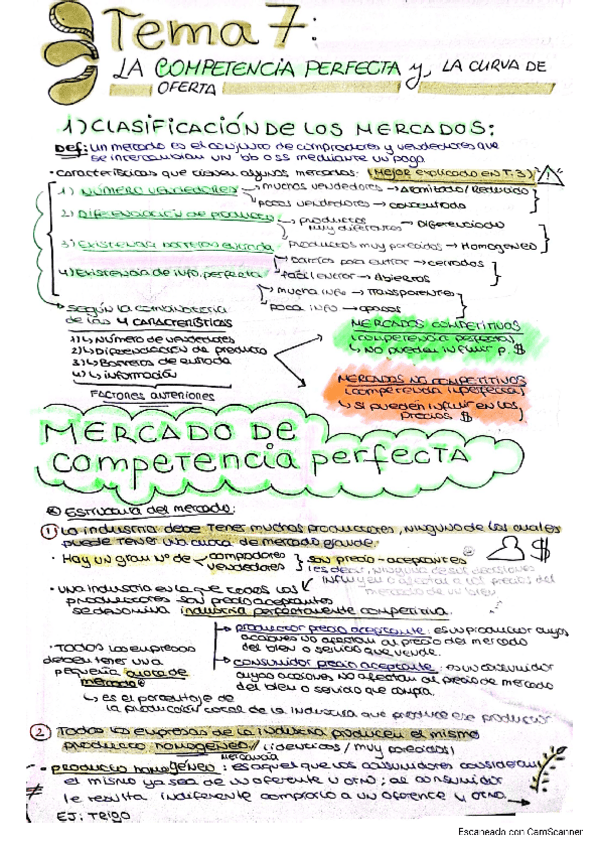 Tema 7:
LA COMPETENCIA PERFECTA y LA CURVA DE
OFERTA
1) CLASIFICACIÓN DE LOS MERCADOS:
Def: un mercado es el conjunto de compradores y vendedores que
se intercambian un bb o ss mediante un pago
• Características que tienen algunos mercados: (Mejor explicado en T.3)
1) NÚMERO VENDEDORES → muchos vendedores → Atomizado/Reducido
pocos vendedores → concentrado
2) DIFERENCIACIÓN DE PRODUCTO → productos muy diferentes → Diferenciado
3) Existencia barreras entrada
productos muy parecidos → Homogéneo
barrios para entrar → cerrados
4) Existencia de info. perfecta
fácil entrar → Abiertos
mucha info → Transparentes
poca info → opacos
según la combinatoria
de las 4 CARACTERÍSTICAS
1) ↳ Número de vendedores
2) ↳ Diferenciación de producto
3) ↳ Barreras de entrada
4) ↳ información
FACTORES anteriores
MERCADOS COMPETITIVOS
(competencia perfecta)
↳ No pueden influir p. $
MERCADOS NO COMPETITIVOS
(competencia imperfecta)
↳ si pueden influir en los
precios $
MERCADO DE
competencia perfecta
Estructura del mercado:
1 La industria debe tener muchos productores, ninguno de los cuales
puede tener una cuota de mercado grande.
• Hay un gran nº de compradores vendedores } son precio-aceptantes
(es decir, ninguna de sus decisiones
influyen o afectan a los precios del
mercado de un bien
• una industria en la que todos los
productores son precio aceptantes
se denomina industria perfectamente competitiva.
→ productor precio aceptante: es un productor cuyas
acciones no afectan al precio del mercado
del bien o servicio que vende.
• Todas las empresas
deben tener una
pequeña cuota de
mercado
→ consumidor precio aceptante: es un consumidor
cuyas acciones no afectan al precio de mercado
del bien o servicio que compra.
↳ es el porcentaje de
la producción total de la industria que produce ese productor
2 Todas las empresas de la industria producen el mismo
producto homogéneo/ (idénticos/muy parecidos)
mercancía
• producto homogéneo: es aquel que los consumidores consideran
el mismo ya sea de un oferente u otro; al consumidor
≠ le resulta indiferente comprarlo a un oferente y otro
EJ: Trigo
Escaneado con CamScanner